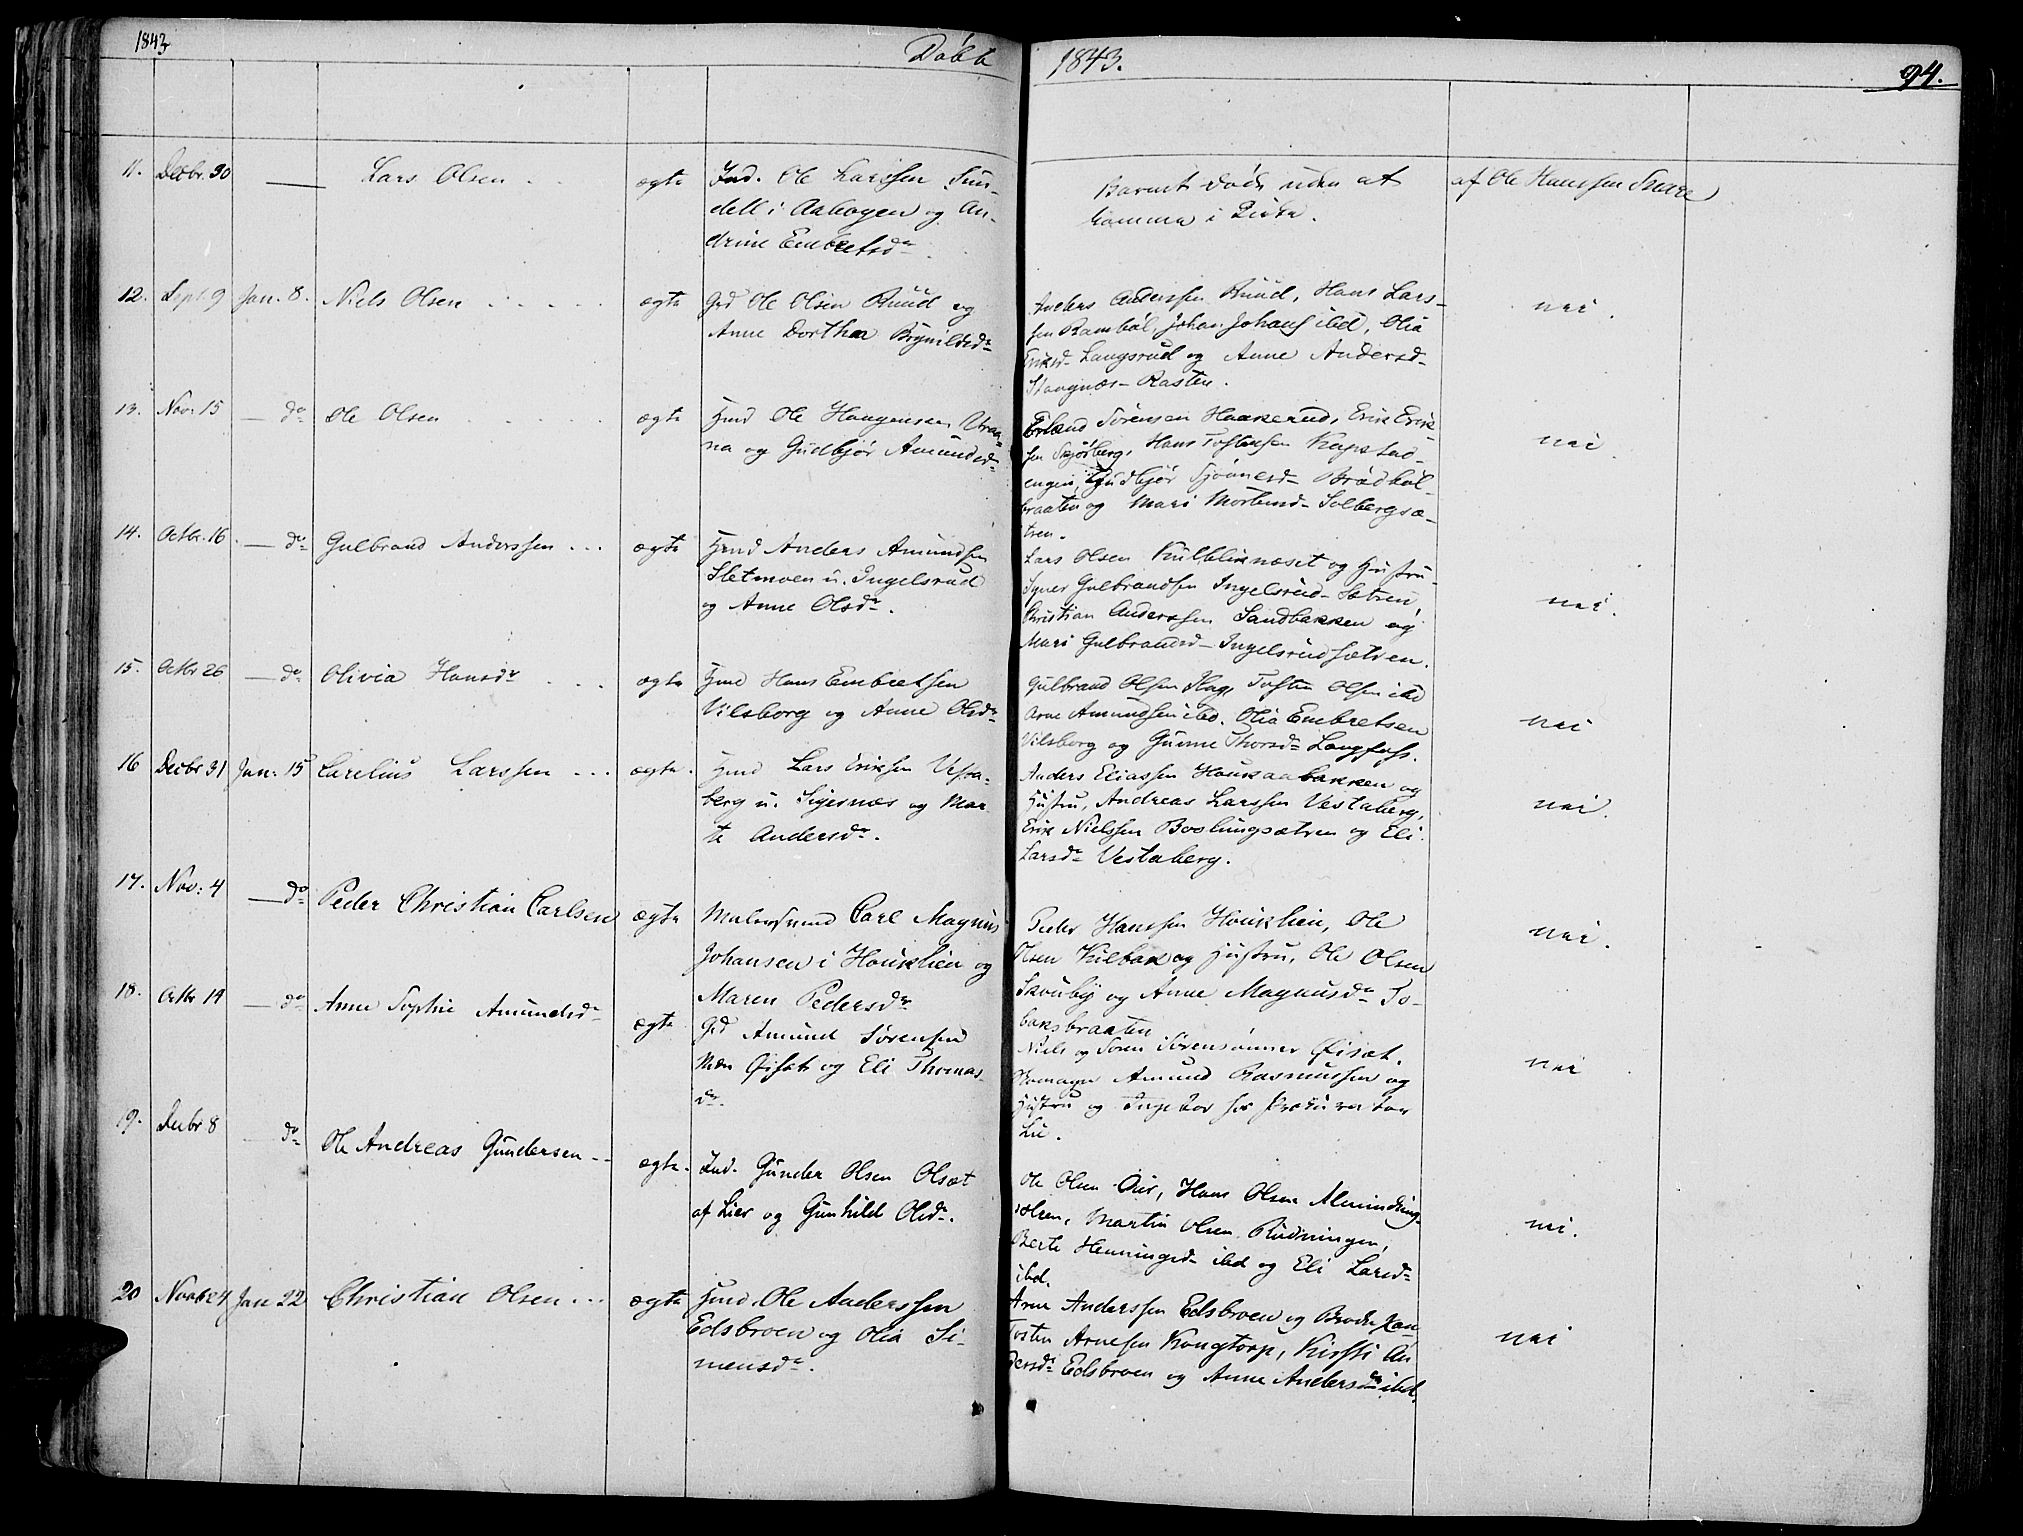 1843
Døbte
1843.
94.
11. Decbr. 30 — Lars Olsen ægte Ind. Ole Larssen Sun-
dell i Aabogen og An-
drine Embretsdr
Barnet døde uden at
komme i Kirke.
af Ole Hanssen Snare
12. Sept. 9 Jan. 8. Niels Olsen ægte Grd Ole Olsen Ruud og
Anne Dorthea Brynildsdr
Anders Anderssen Ruud, Hans Lars-
sen Rambøl, Johan Johans ibd, Olia
Eriksd Langsrud og Anne Andersd
Stangnæs-Rasten.
nei.
13. Nov. 15 — do Ole Olsen ægte Hmd Ole Haagensen Vraa-
na og Gudbjør Amundsd
Erland Sørensen Haakerud, Erik Erik-
sen Sjøberg, Hans Tostensen Kapstad-
engen, Gudbjør Sjønnesd Brødbøl-
braaten og Mari Mortensd Solbergsæ-
tren.
nei.
14. Octbr. 16. — do Gulbrand Anderssen ... ægte Hmd Anders Amundsen
Sletmoen u. Ingelsrud
og Anne Olsdr.
Lars Olsen Kulbliknæset og Hustru
Gulbrandsen Ingelsrud-Sætren,
Christian Anderssen Sandbakken og
Mari Gulbrandsd Ingelsrudsætren.
nei.
15. Octbr 26 — do Olivia Hansdr ægte Hmd Hans Embretsen
Vilsborg og Anne Olsdr
Gulbrand Olsen Flag, Tosten Olsen ibd
Arne Amundsen ibd. Olia Embretsen
Vilsborg og Gunne Thorsdr Langfoss.
nei
16 Decbr 31 Jan. 15 Carelius Larssen ... ægte. Hmd Lars Eriksen Vesta-
berg u. Sigernæs og Mar-
te Andersdr.
Anders Eliassen Houkaabakken og
Hustru, Andreas Larssen Vestaberg,
Erik Nielssen Boslungsætren og Eli
Larsdr Vestaberg.
nei.
17. Nov: 4 — do Peder Christian Carlsen ægte Malersvend Carl Magnus
Johansen i Houklien og
Maren Pedersdr
Peder Hanssen Houklien, Ole
Olsen Kilbak og Hustru, Ole Olsen
Skouby og Anne Magnusdr To-
baksbraaten
nei.
18. Octbr 14 — do Anne Sophie Amundsdr ægte Grd Amund Sørensen
Øisæt og Eli Thomas-
dr.
Niels og Soren Sørensønner Øisæt.
Amund Rasmussen og
Hustru og Ingebor hos Procurator
Lie.
nei.
19. Decbr 8 — do Ole Andreas Gundersen -- ægte. Ind. Gunder Olsen Olsæt
af Lier og Gunhild Olsdr.
Ole Olsen Lier, Hans Olsen Alminding-
Martin Olsen Rudningen,
Berte Henningsd ibd og Eli Larsdr
ibd.
nei.
20 Novbr 24 Jan 22 Christian Olsen ... ægte Hmd. Ole Anderssen
Edsbroen og Olia Si-
mensdr.
Arne Anderssen Edsbroen og Broder
Tosten Arnesen Kongtorp, Kirsti An-
dersdr Edsbroen og Anne Andersdr ibd.
nei